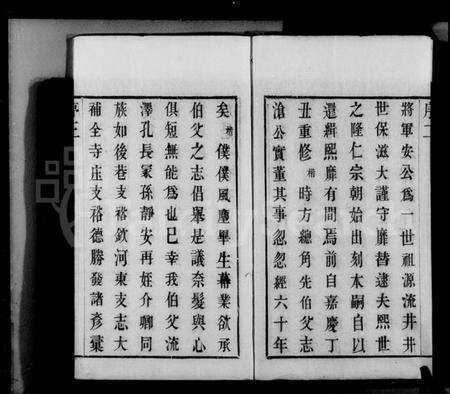 序二
將軍安公爲一世祖源流井井
世保滋大謹守靡替逮夫熙世
之隆仁宗朝始出刻本嗣自以
還緝熙靡有間焉前自嘉慶丁
丑重修 時方總角先伯父志
滄公實董其事忽忽經六十年
矣 僕僕風塵畢生幕業欲承
伯父之志倡舉是議奈髮與心
俱短無能爲也已幸我伯父流
澤孔長冢孫靜安再姪介卿同
族如後巷支裕欽河東支志大
補全寺庄支裕德勝發諸彥彙
序三